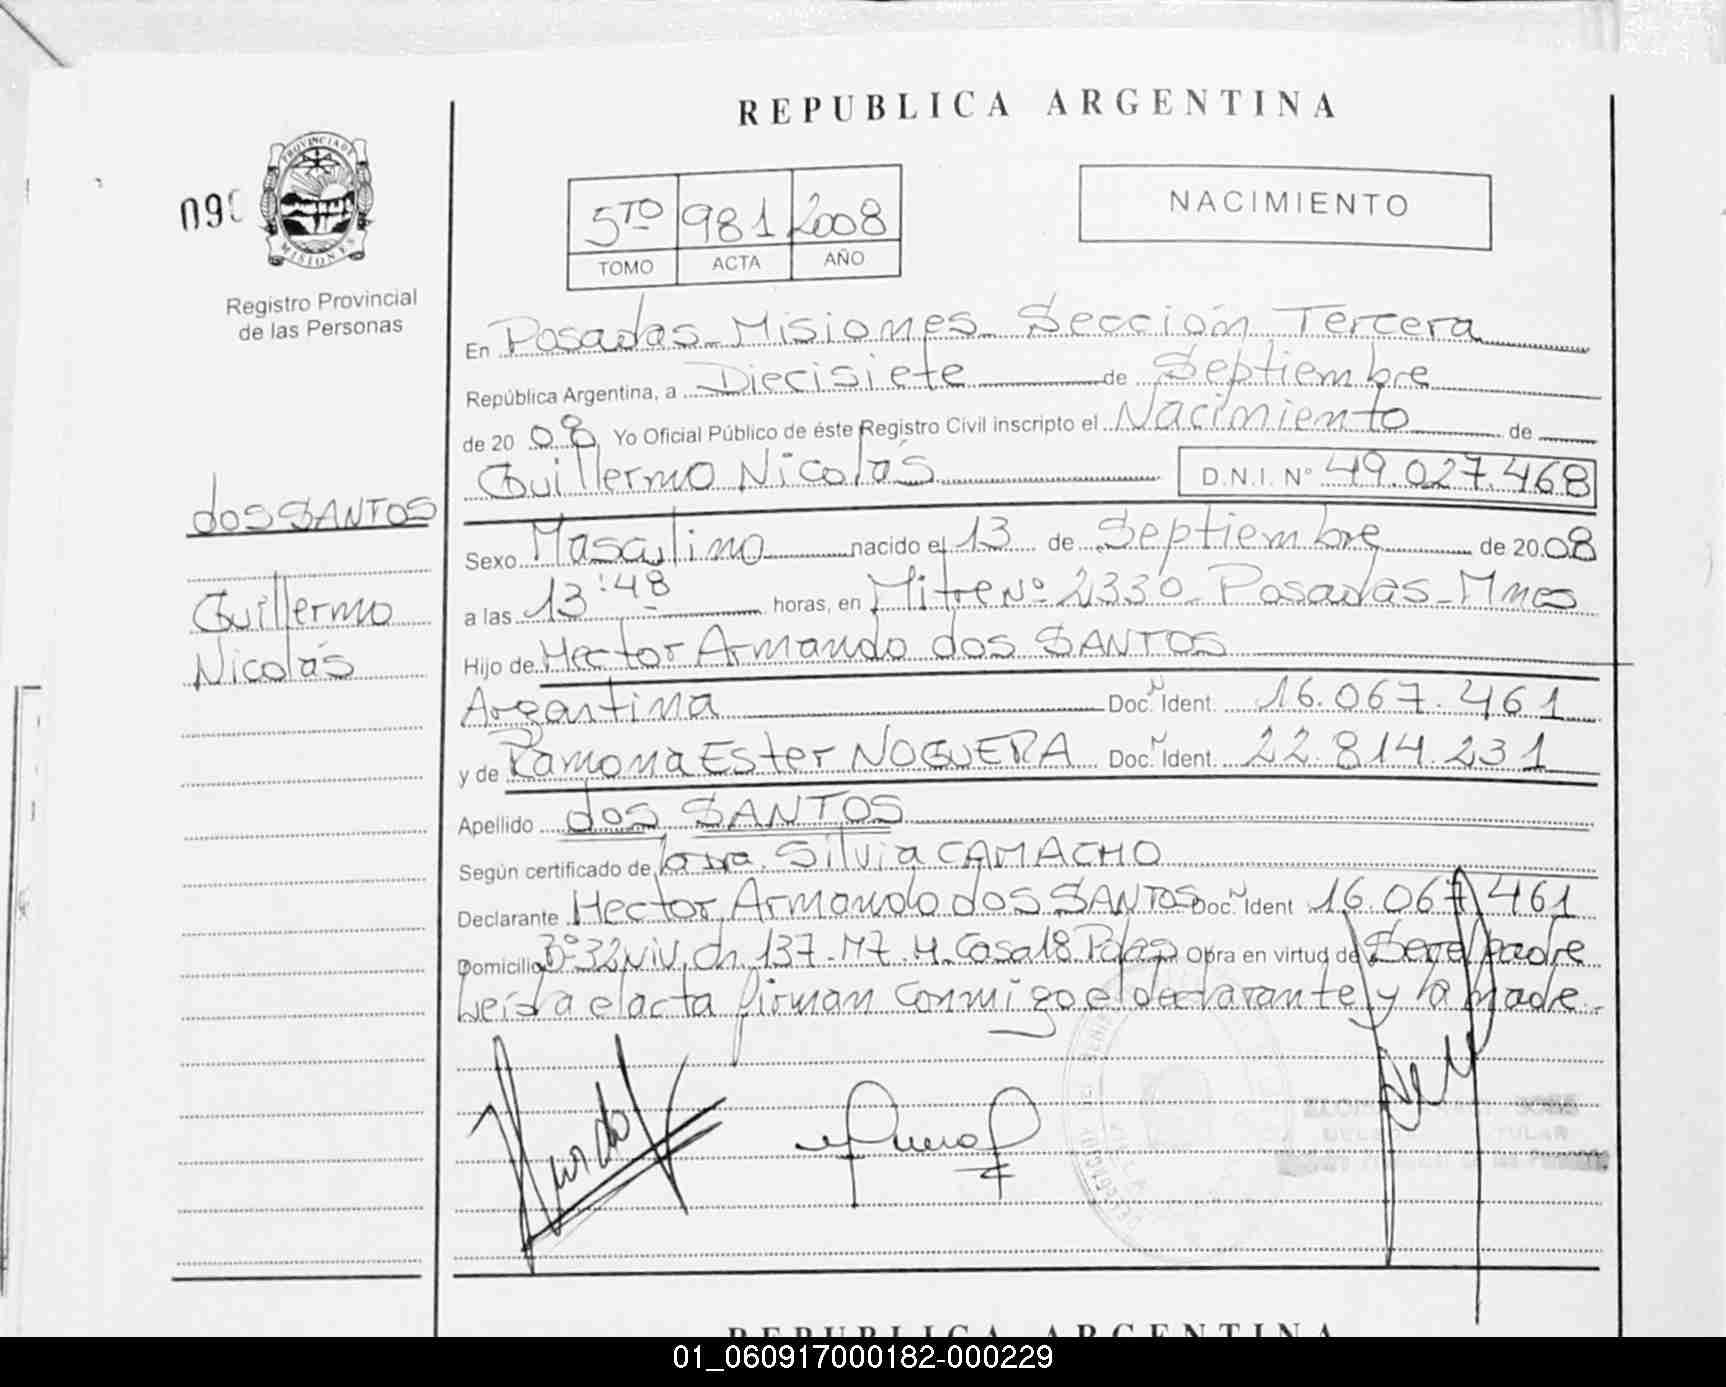 REPUBLICA ARGENTINA
PROVINCIA DE
MISIONES
Registro Provincial
de las Personas
5TO 981 2008
TOMO ACTA AÑO
NACIMIENTO
En Posadas Misiones Sección Tercera
República Argentina, a Diecisiete de Septiembre
de 2008 Yo Oficial Público de éste Registro Civil inscripto el Nacimiento de
Guillermo Nicolás D.N.I. Nº 49.027.468
dos SANTOS
Guillermo
Nicolás
Sexo Masculino nacido el 13 de Septiembre de 2008
a las 13:48 horas, en Mitre Nº 2330 Posadas - Mnes
Hijo de Hector Armando dos SANTOS
Argentina Doc. Ident. 16.067.461
y de Ramona Ester NOGUERA Doc. Ident. 22.814.231
Apellido dos SANTOS
Según certificado de la Dra. Silvia CAMACHO
Declarante Hector Armando dos SANTOS Doc. Ident 16.067.461
Domicilio Bº 32 viv. ch. 137 - M7. H. Casa 18 Pdas Obra en virtud de Ser el padre
Leída el acta firman conmigo el declarante y la madre
REPUBLICA ARGENTINA
01_060917000182-000229